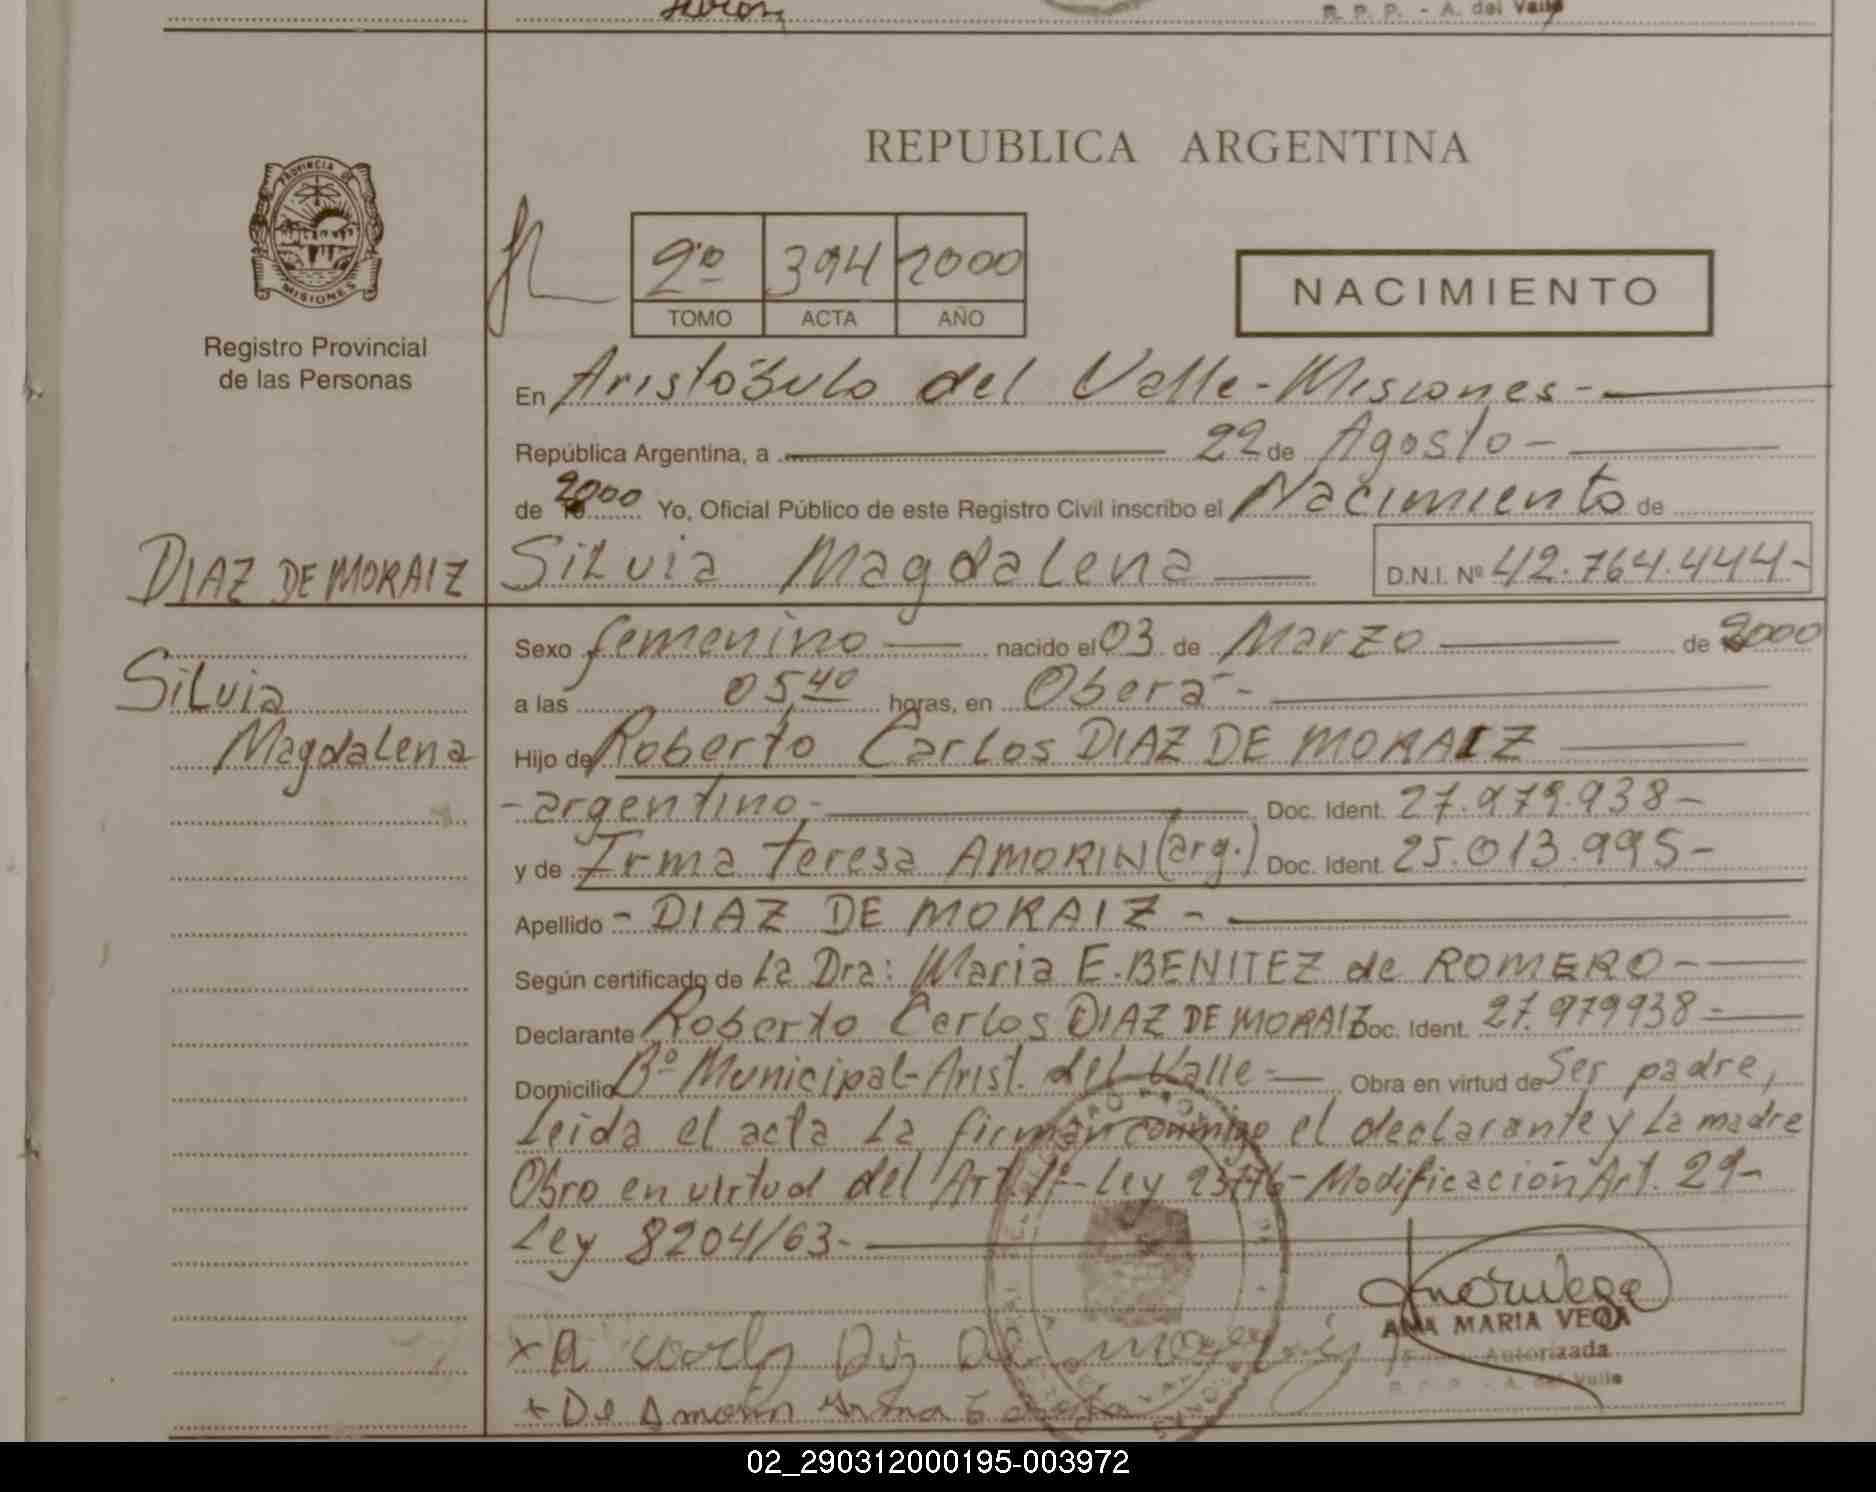 R. P. P. - A. del Valle
REPUBLICA ARGENTINA
PROVINCIA DE
MISIONES
Registro Provincial
de las Personas
2º 394 2000
TOMO ACTA AÑO
NACIMIENTO
En Aristóbulo del Valle - Misiones -
República Argentina, a 22 de Agosto -
de 2000 Yo, Oficial Público de este Registro Civil inscribo el Nacimiento de
DIAZ DE MORAIZ Silvia Magdalena D.N.I. Nº 42.764.444-
Silvia
Magdalena
Sexo femenino nacido el 03 de Marzo de 2000
a las 05 40 horas, en Oberá -
Hijo de Roberto Carlos DIAZ DE MORAIZ
- argentino - Doc. Ident. 27.979.938-
y de Irma Teresa AMORIN (arg.) Doc. Ident. 25.013.995-
Apellido - DIAZ DE MORAIZ -
Según certificado de La Dra: Maria E. BENITEZ de ROMERO -
Declarante Roberto Carlos DIAZ DE MORAIZ Doc. Ident. 27.979938-
Domicilio Bº Municipal - Arist. del Valle - Obra en virtud de Ser padre,
Leida el acta La firman conmigo el declarante y La madre
Obro en virtud del Art. 1º - Ley 23776 - Modificación Art. 29 -
Ley 8204/63 -
ANA MARIA VEGA
Autorizada
R. P. P. - A. del Valle
02_290312000195-003972